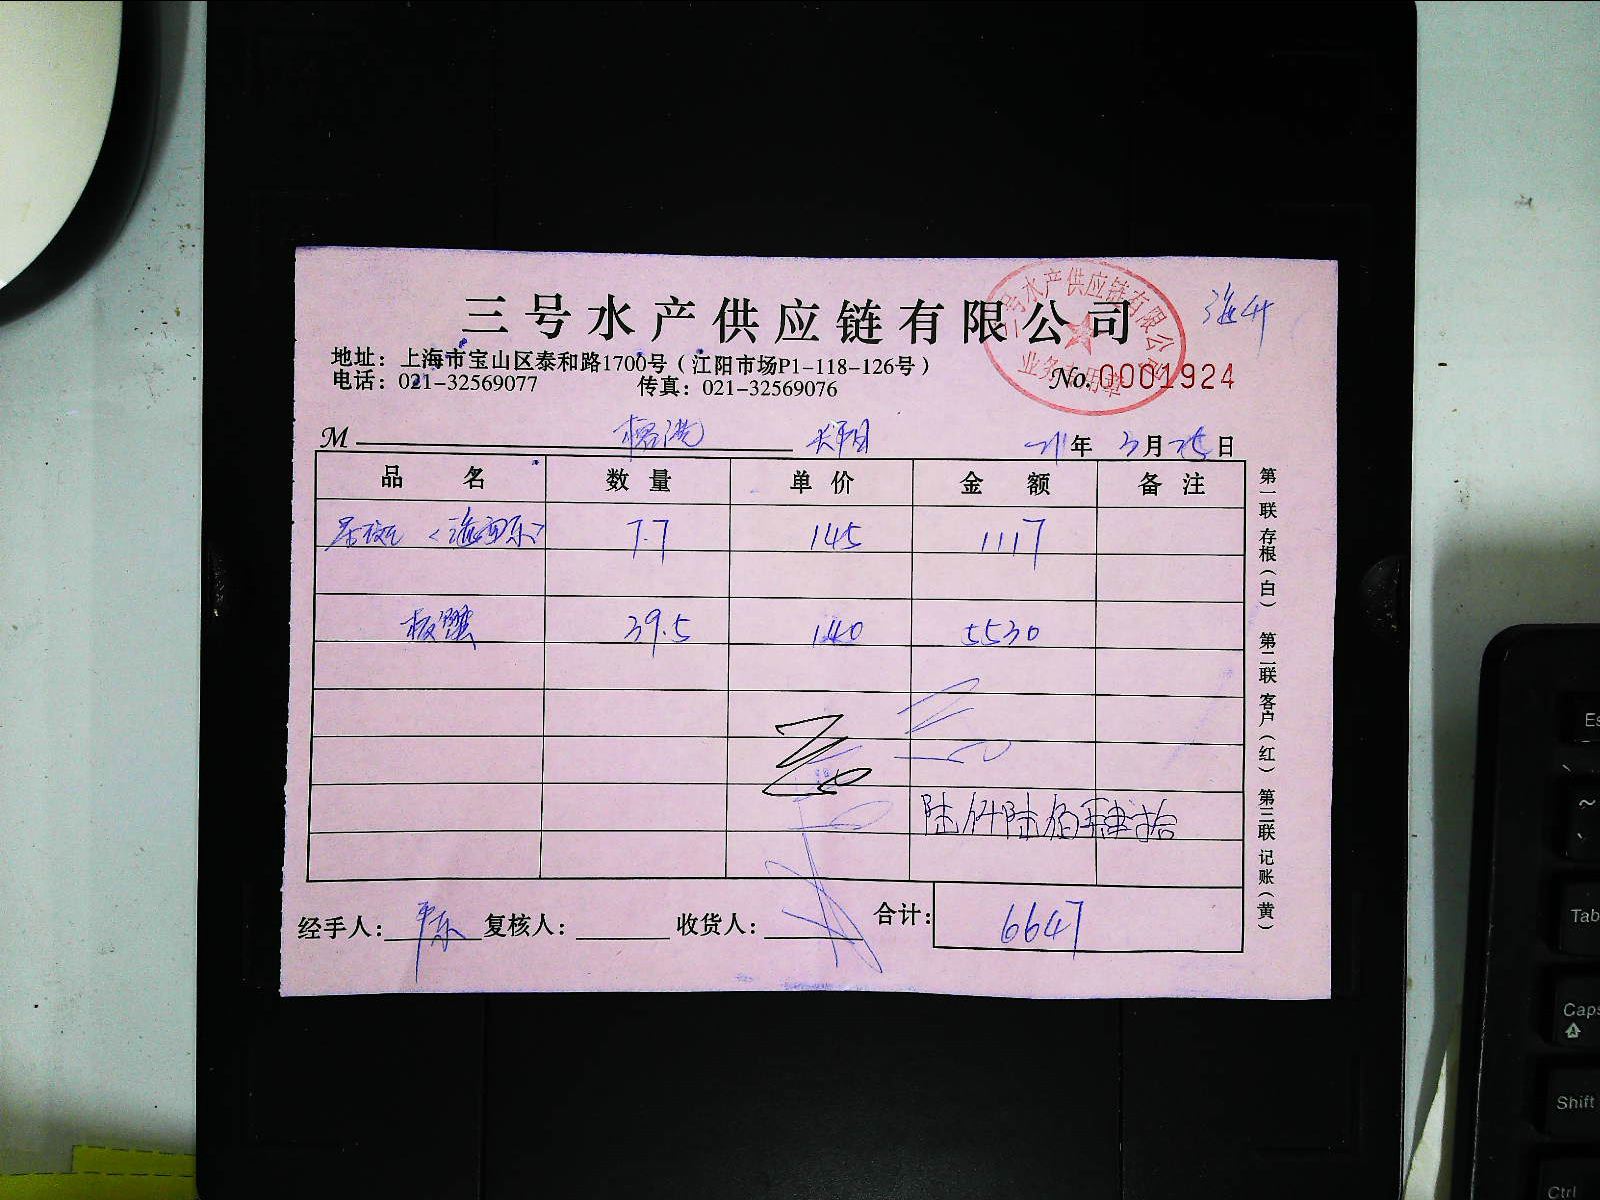 三号水产供应链有限公司
地址：上海市宝山区泰和路1700号（江阳市场P1-118-126号）
电话：021-32569077 传真：021-32569076
三号水产供应链有限公司
业务专用章
No.0001924
M
21年 3月25日
品 名 数 量 单 价 金 额 备 注
7.7 145 1117
板蟹 39.5 140 5530
陆仟陆佰肆拾
经手人： 复核人： 收货人： 合计：6647
第一联 存根（白） 第二联 客户（红） 第三联 记账（黄）
Tab
Caps
Shift
Ctrl